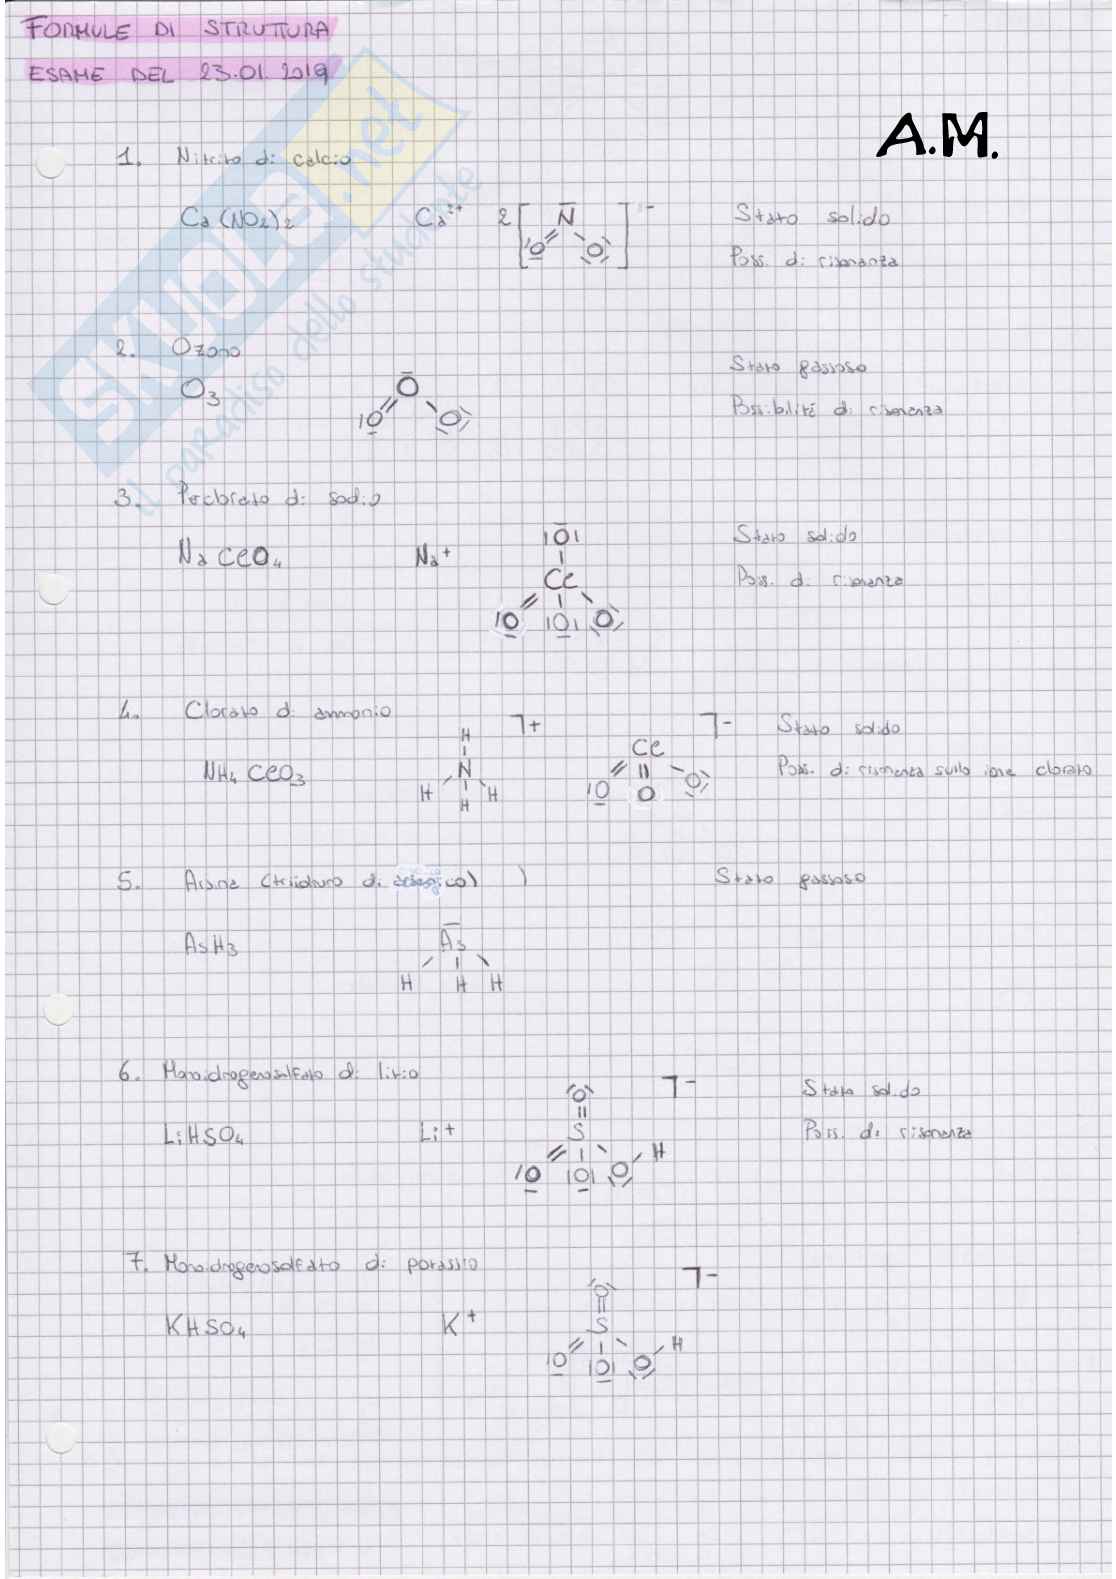 FORMULE DI STRUTTURA
ESAME DEL 23.01.2019
A.M.
SKUOLA.net
il paradiso dello studente
1. Nitrito di calcio
Ca(NO2)2 Ca2+ 2[N O O]- Stato solido
Poss. di risonanza
2. Ozono
O3 Stato gassoso
O O O Possibilità di risonanza
3. Perclorato di sodio
NaClO4 Na+ O Cl O O O Stato solido
Poss. di risonanza
4. Clorato di ammonio
NH4ClO3 H N H H H + Cl O O O - Stato solido
Poss. di risonanza sullo ione clorato
5. Arsina (triidruro di arsenico) ) Stato gassoso
AsH3 As H H H
6. Monoidrogenosolfato di litio
LiHSO4 Li+ O S O O O H - Stato solido
Poss. di risonanza
7. Monoidrogenosolfato di potassio
KHSO4 K+ O S O O O H -